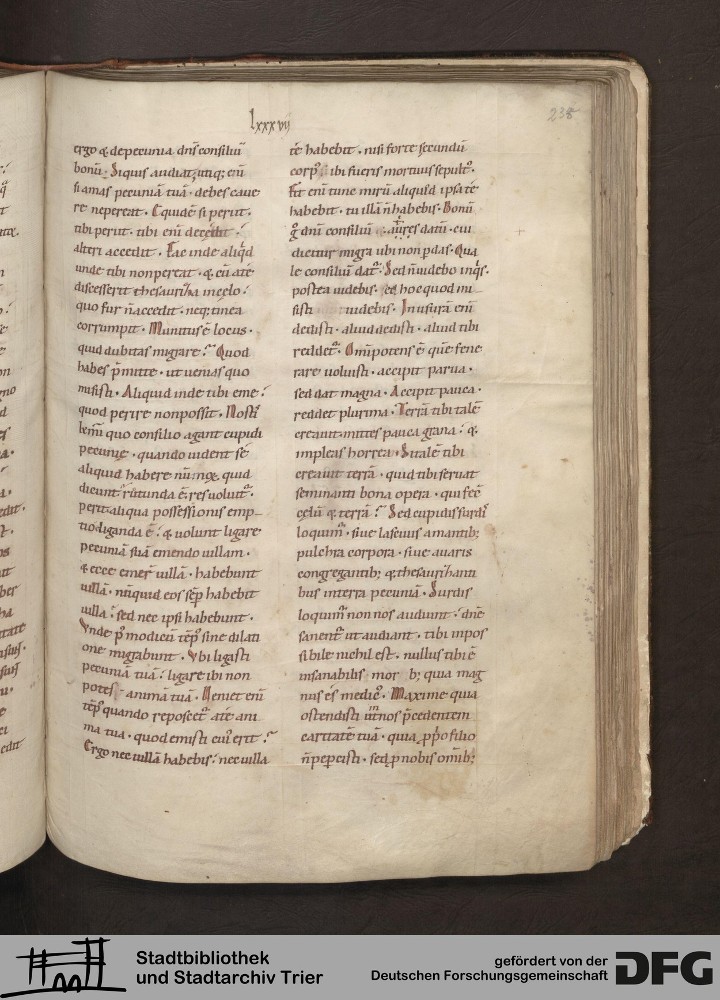 lxxxvii
238
ergo & depecunia dñs consiliũ
bonũ. Siquis audiat, utiq; eũ
si amas pecuniã tuã. debes caue
re nepereat. Et quidẽ si perit.
tibi perit. tibi enĩ decedit.
alteri accedit. Fac inde aliq̃d
unde tibi nonpereat. & cũ a te
discesserit thesaurizã incelo.
quo fur ñaccedit. neq; tinea
corrumpit. Munitus ẽ locus.
quid dubitas migrare? Quod
habes p̃mitte. ut uenias quo
misisti. Aliquid inde tibi eme.
quod perire nonpossit. Nosti
quo consilio agant cupidi
pecunię. quando uident sẽ
aliquid habere quid
dicunt rutunda ẽ. res uoluit᷒.
perit aliqua possessionis emp-
tio diganda ẽ. & uolunt ligare
pecuniã suã emendo uillam.
& ecce emer̃ uillã. habebunt
uillã. nũquid eos sẽp habebit
uilla? sed nec ipsi habebunt.
Vnde p᷒ modicũ tẽp᷒ sine dilati
one migrabunt. Vbi ligasti
pecuniã tuã? ligare ibi non
potes animã tuã. Veniet enĩ
tẽp᷒ quando reposcet᷒ a te ani
ma tua. quod emisti cui᷒ erit?
Ergo nec uillã habebis. nec uilla
tẽ habebit. nisi forte secundũ
corp᷒. si ibi fueris mortuus sepult᷒.
Fit enĩ tunc mirũ aliquid ipsa tẽ
habebit. tu illã ñ habebis. Bonũ
g̊ dñi consiliũ aures datũ. cui
dicitur migra ubi non p̱das. Qua
le consiliũ dat᷒. Sed ñ uidebo inq̃s.
postea uidebis. sed hoc quod mi
sisti uidebis. Inusurã enĩ
dedisti. aliud dedisti. aliud tibi
reddet᷒. Omñpotens ẽ quẽ fene
rare uoluisti. accipit parua.
sed dat magna. Accipit pauca.
reddet plurima. Terrã tibi talẽ
creauit. mittes pauca grana. &
impleas horrea. Si talẽ tibi
creauit terrã. quid tibi seruat
seminanti bona opera. qui fec̃
cęlũ & terrã? Sed cupidis surdis
loquim᷒. siue lasciuis amantib;
pulchra corpora. siue auaris
congregantib; & thesaurizanti
bus interra pecuniã. Surdis
loquim᷒ non nos audiunt. dñe
sanent᷒ ut audiant. tibi inpos
sibile nichil est. nullus tibi ẽ
insanabilis mor b; quia mag
nus es medic᷒. Maxime quia
ostendisti in nos p̃cedentem
caritatẽ tuã. quia p̱p̃o filio
ñ pepercisti. sed p̱ nobis omĩb;
Stadtbibliothek
und Stadtarchiv Trier
gefördert von der
Deutschen Forschungsgemeinschaft
DFG